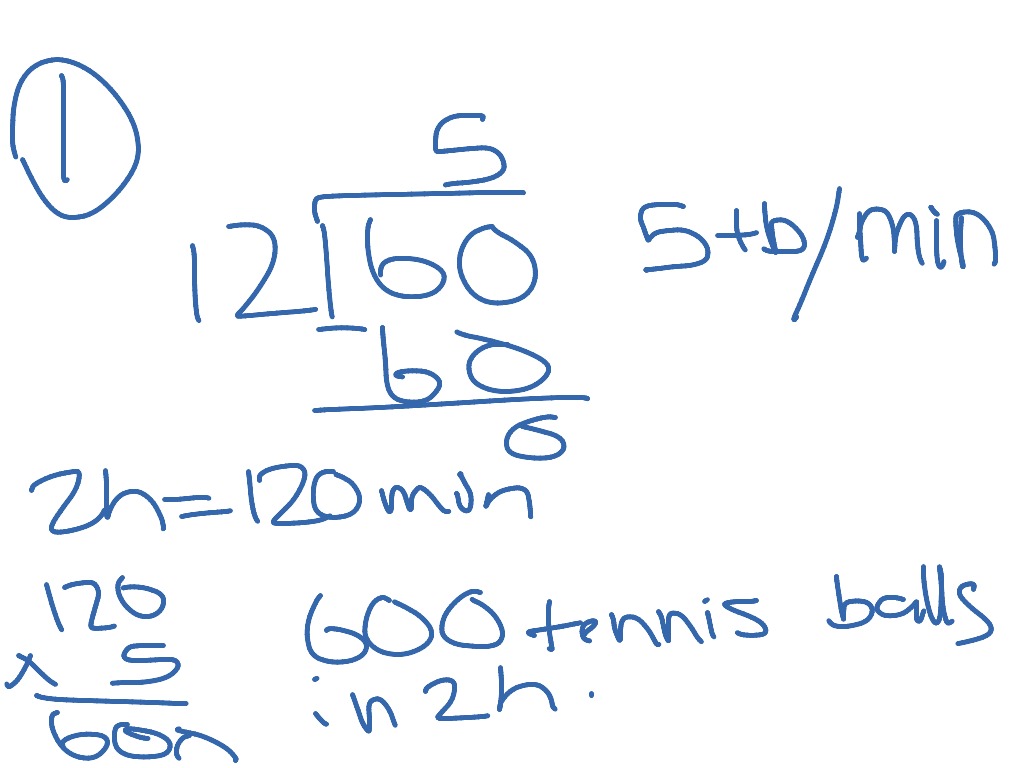 1
5
12 60 5 tb/min
- 60
0
2h = 120 min
120
x 5
600
600 tennis balls
in 2h.